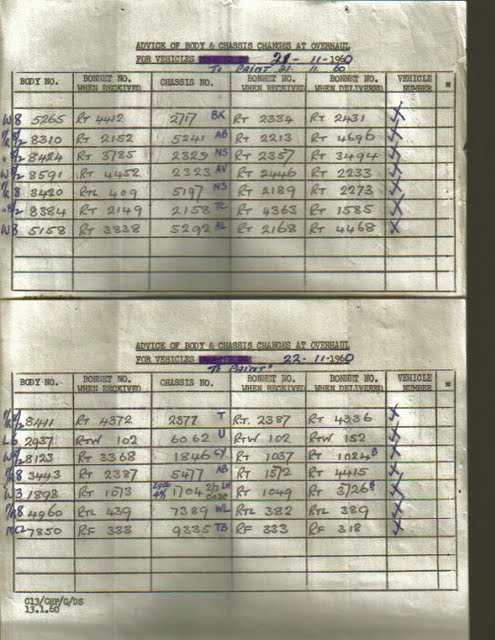 ADVICE OF BODY & CHASSIS CHANGES AT OVERHAUL
FOR VEHICLES 21-11-1960
"To PAINT" 21 11 60
BODY NO. BONNET NO. WHEN RECEIVED CHASSIS NO. BONNET NO. WHEN RECEIVED BONNET NO. WHEN DELIVERED VEHICLE NUMBER
W8 5265 RT 4412 2717 BK RT 2334 RT 2431
8/2 8310 RT 2152 5241 AB RT 2213 RT 4696
8/2 8424 RT 3785 2329 NS RT 2357 RT 3494
W 8/2 8591 RT 4452 2323 AV RT 2446 RT 2233
8 3420 RTL 409 5197 NS RT 2189 RT 2273
8/2 8384 RT 2149 2158 TL RT 4363 RT 1585
W8 5158 RT 3838 5292 AL RT 2168 RT 4468
ADVICE OF BODY & CHASSIS CHANGES AT OVERHAUL
FOR VEHICLES 22-11-1960
"To PAINT"
BODY NO. BONNET NO. WHEN RECEIVED CHASSIS NO. BONNET NO. WHEN RECEIVED BONNET NO. WHEN DELIVERED VEHICLE NUMBER
8/2 8441 RT 4372 2377 T RT. 2387 RT 4336
L6 2937 RTW 102 6062 U RTW 102 RTW 152
W 8/2 8123 RT 3368 1846 CY RT 1037 RT 1024 B
8 3443 RT 2387 5477 AB RT 1572 RT 4415
W3 1898 RT 1073 1704 RT 1049 RT 3726 B
8 4960 RTL 439 7389 WL RTL 382 RTL 389
7850 RF 333 9335 TB RF 333 RF 318
C13/CHP/G/DS
13.1.60